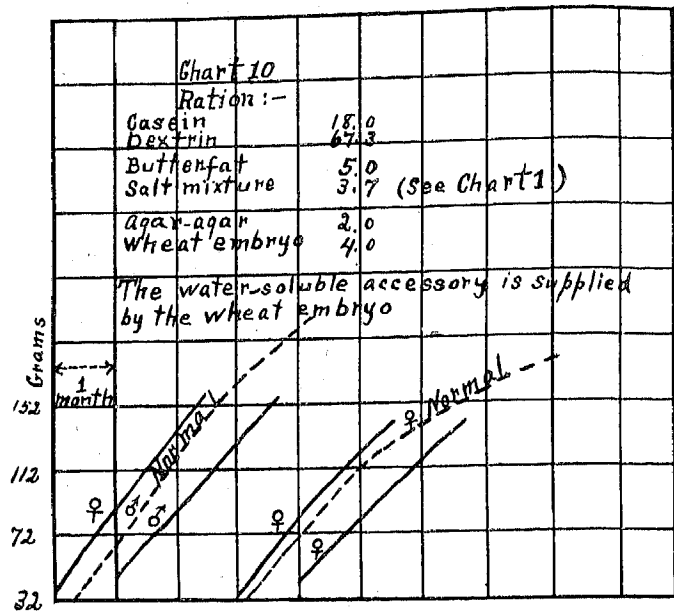 Chart 10
Ration :-
Casein 18.0
Dextrin 67.3
Butterfat 5.0
Salt mixture 3.7 (See Chart 1)
Agar-agar 2.0
Wheat embryo 4.0
The water-soluble accessory is supplied
by the wheat embryo
Grams
1
month
152
112
72
32
Normal
♀ Normal
♀
♂
♂
♀
♀